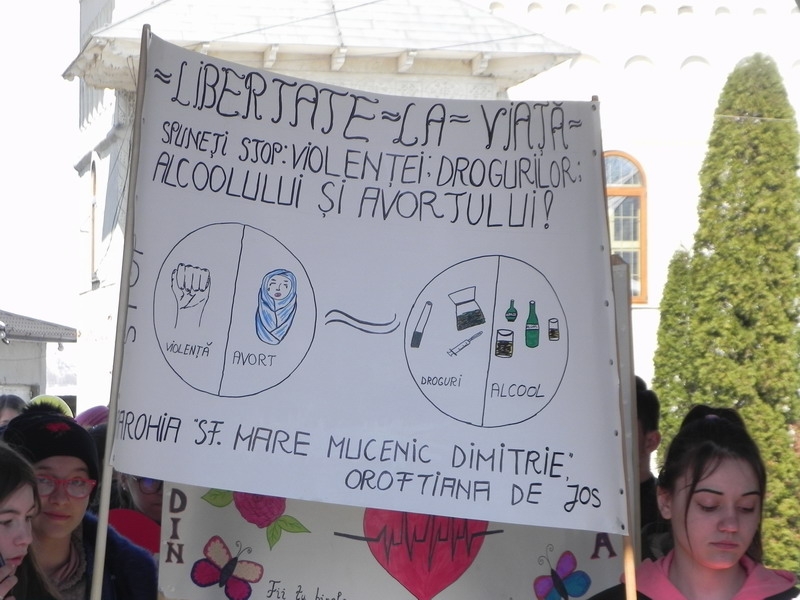 ≈LIBERTATE≈LA≈ VIAȚĂ≈
SPUNEȚI STOP: VIOLENȚEI; DROGURILOR;
ALCOOLULUI ȘI AVORTULUI!
STOP
VIOLENȚĂ
AVORT
DROGURI
ALCOOL
AROHIA "SF. MARE MUCENIC DIMITRIE",
OROFTIANA DE JOS
DIN
A
Fii tu